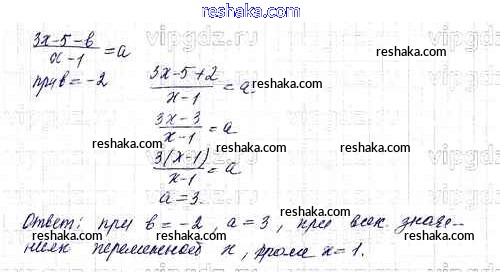 reshaka.com
(3x-5-в)/(x-1) = a
при в = -2
(3x-5+2)/(x-1) = a.
reshaka.com
reshaka.com
(3x-3)/(x-1) = a
reshaka.com
reshaka.com
3(x-1)/(x-1) = a
reshaka.com
reshaka.com
a = 3.
Ответ: при в = -2, a = 3, при всех значе-
ниях переменной x, кроме x = 1.
reshaka.com
reshaka.com